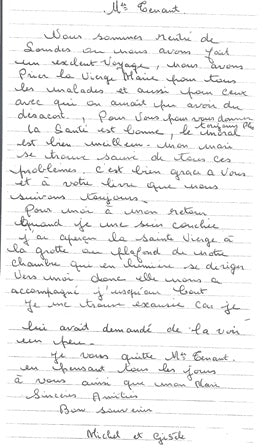 Mr Tenant.
Nous sommes rentré de
Lourdes ou nous avons fait
un exelent voyage, nous avons
Prier la Vierge Marie pour tous
les malades et aussi pour ceux
avec qui on aurait pu avoir du
desacort, Pour Vous pour vous donner
toujours Plus
la Santé est bonne, le moral
est bien meilleur. mon mari
se trouve sauvé de tous ces
problèmes. c'est bien grace a Vous
et à votre livre que nous
suivons toujours.
Pour moi à mon retour
Quand je me suis couchée
j'ai aperçu la Sainte Vierge à
la grotte au plafond de notre
chambre que en lumière se diriger
Vers moi donc elle nous a
accompagné j'usqu'au bout
Je me trouve exaucée car je
lui avait demandé de la voir
un peu.
Je vous quitte Mr Tenant.
en pensant tous les jours
à vous ainsi que mon Mari
Sinceres Amitiés
Bon souvenir
Michel et Gisèle